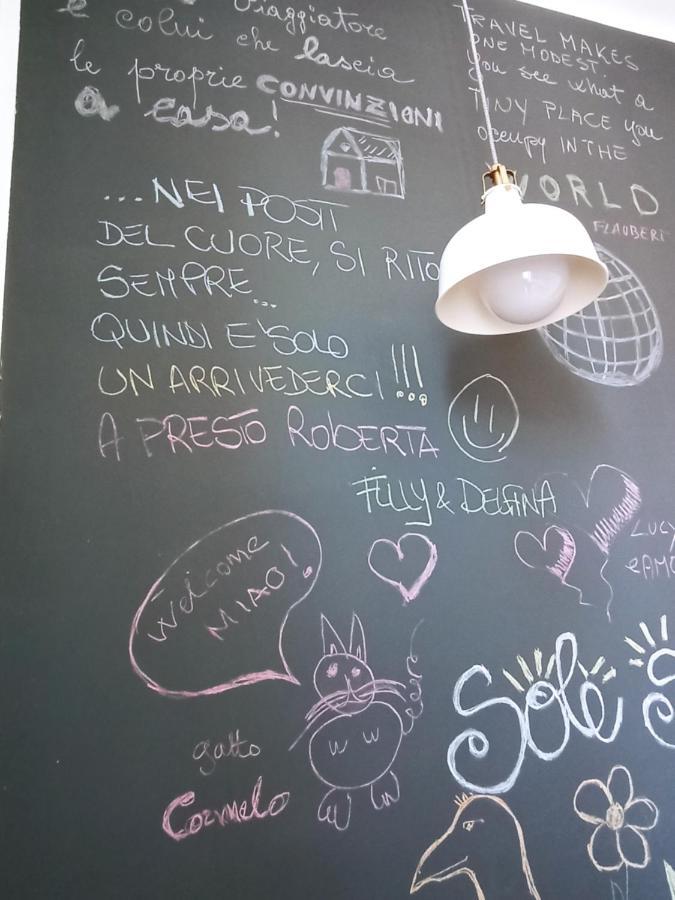 è colui che lascia
viaggiatore
le proprie CONVINZIONI
a casa!
TRAVEL MAKES
ONE MODEST.
you see what a
TINY PLACE you
occupy IN THE
WORLD
FLAUBERT
...NEI POSTI
DEL CUORE, SI RITO
SEMPRE...
QUINDI E' SOLO
UN ARRIVEDERCI!!!...
A PRESTO ROBERTA
FILLY & DELFINA
LUCY
Welcome
MIAO!
gatto
Carmelo
Sole
S